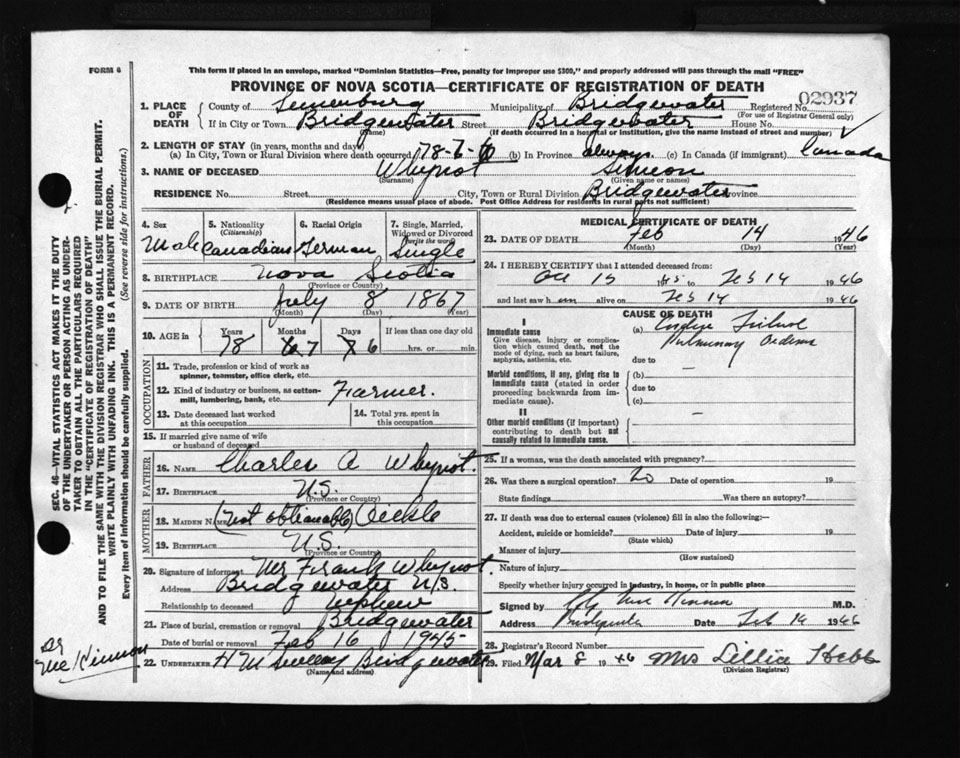 FORM 6
This form if placed in an envelope, marked "Dominion Statistics—Free, penalty for improper use $300," and properly addressed will pass through the mail "FREE"
PROVINCE OF NOVA SCOTIA—CERTIFICATE OF REGISTRATION OF DEATH
02937
1. PLACE OF DEATH
County of Lunenburg Municipality of Bridgewater Registered No.
(For use of Registrar General only)
If in City or Town Bridgewater Street Bridgewater House No.
(Name) (If death occurred in a hospital or institution, give the name instead of street and number)
2. LENGTH OF STAY (in years, months and days)
(a) In City, Town or Rural Division where death occurred 78-6- (b) In Province always (c) In Canada (if immigrant) Canada
3. NAME OF DECEASED Whynot Simeon
(Surname) (Given name or names)
RESIDENCE No. Street City, Town or Rural Division Bridgewater Province
(Residence means usual place of abode. Post Office Address for residents in rural parts not sufficient)
4. Sex Male
5. Nationality (Citizenship) Canadian
6. Racial Origin German
7. Single, Married, Widowed or Divorced (write the word) Single
8. BIRTHPLACE Nova Scotia
(Province or Country)
9. DATE OF BIRTH July 8 1867
(Month) (Day) (Year)
10. AGE in Years Months Days If less than one day old
78 7 6 hrs. or min.
OCCUPATION
11. Trade, profession or kind of work as spinner, teamster, office clerk, etc.
12. Kind of industry or business, as cotton-mill, lumbering, bank, etc. Farmer.
13. Date deceased last worked at this occupation
14. Total yrs. spent in this occupation
15. If married give name of wife or husband of deceased
FATHER
16. NAME Charles A Whynot.
17. BIRTHPLACE N.S.
(Province or Country)
MOTHER
18. MAIDEN NAME (Not obtianable) Oickle
19. BIRTHPLACE N.S.
(Province or Country)
20. Signature of informant Mr Frank Whynot.
Address Bridgewater N.S.
Relationship to deceased nephew
21. Place of burial, cremation or removal Bridgewater
Date of burial or removal Feb 16 1945
22. UNDERTAKER H M Bridgewater
(Name and address)
MEDICAL CERTIFICATE OF DEATH
23. DATE OF DEATH Feb 14 1946
(Month) (Day) (Year)
24. I HEREBY CERTIFY that I attended deceased from:
Oct 15 1945 to Feb 14 1946
and last saw him alive on Feb 14 1946
CAUSE OF DEATH
I
Immediate cause
Give disease, injury or complication which caused death, not the mode of dying, such as heart failure, asphyxia, asthenia, etc.
(a) Failure
Pulmonary Oedema
due to
Morbid conditions, if any, giving rise to immediate cause (stated in order proceeding backwards from immediate cause).
(b) —
due to
(c)
II
Other morbid conditions (if important) contributing to death but not causally related to immediate cause.
—
25. If a woman, was the death associated with pregnancy?
26. Was there a surgical operation? No Date of operation 19
State findings Was there an autopsy?
27. If death was due to external causes (violence) fill in also the following:—
Accident, suicide or homicide? Date of injury 19
(State which)
Manner of injury
(How sustained)
Nature of injury
Specify whether injury occurred in industry, in home, or in public place
Signed by M.D.
Address Bridgewater Date Feb 14 1946
28. Registrar's Record Number
29. Filed Mar 8 1946 Mrs Lillia Hebb
(Division Registrar)
SEC. 46—VITAL STATISTICS ACT MAKES IT THE DUTY
OF THE UNDERTAKER OR PERSON ACTING AS UNDER-
TAKER TO OBTAIN ALL THE PARTICULARS REQUIRED
IN THE "CERTIFICATE OF REGISTRATION OF DEATH"
AND TO FILE THE SAME WITH THE DIVISION REGISTRAR WHO SHALL ISSUE THE BURIAL PERMIT.
WRITE PLAINLY WITH UNFADING INK. THIS IS A PERMANENT RECORD.
Every item of information should be carefully supplied. (See reverse side for instructions.)
Dr
McKinnon